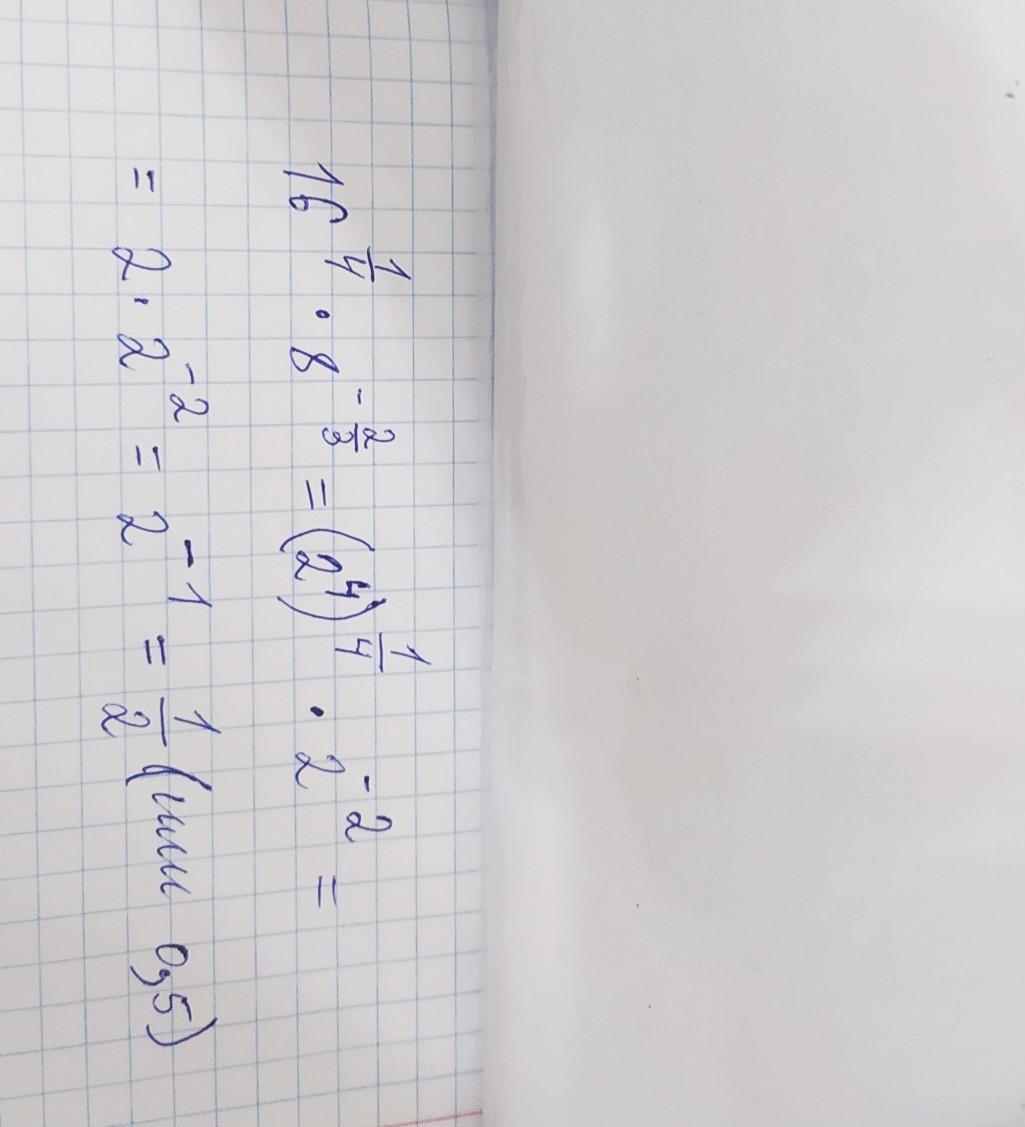 16^{1/4} · 8^{-2/3} = (2^4)^{1/4} · 2^{-2} =
= 2 · 2^{-2} = 2^{-1} = 1/2 (или 0,5)